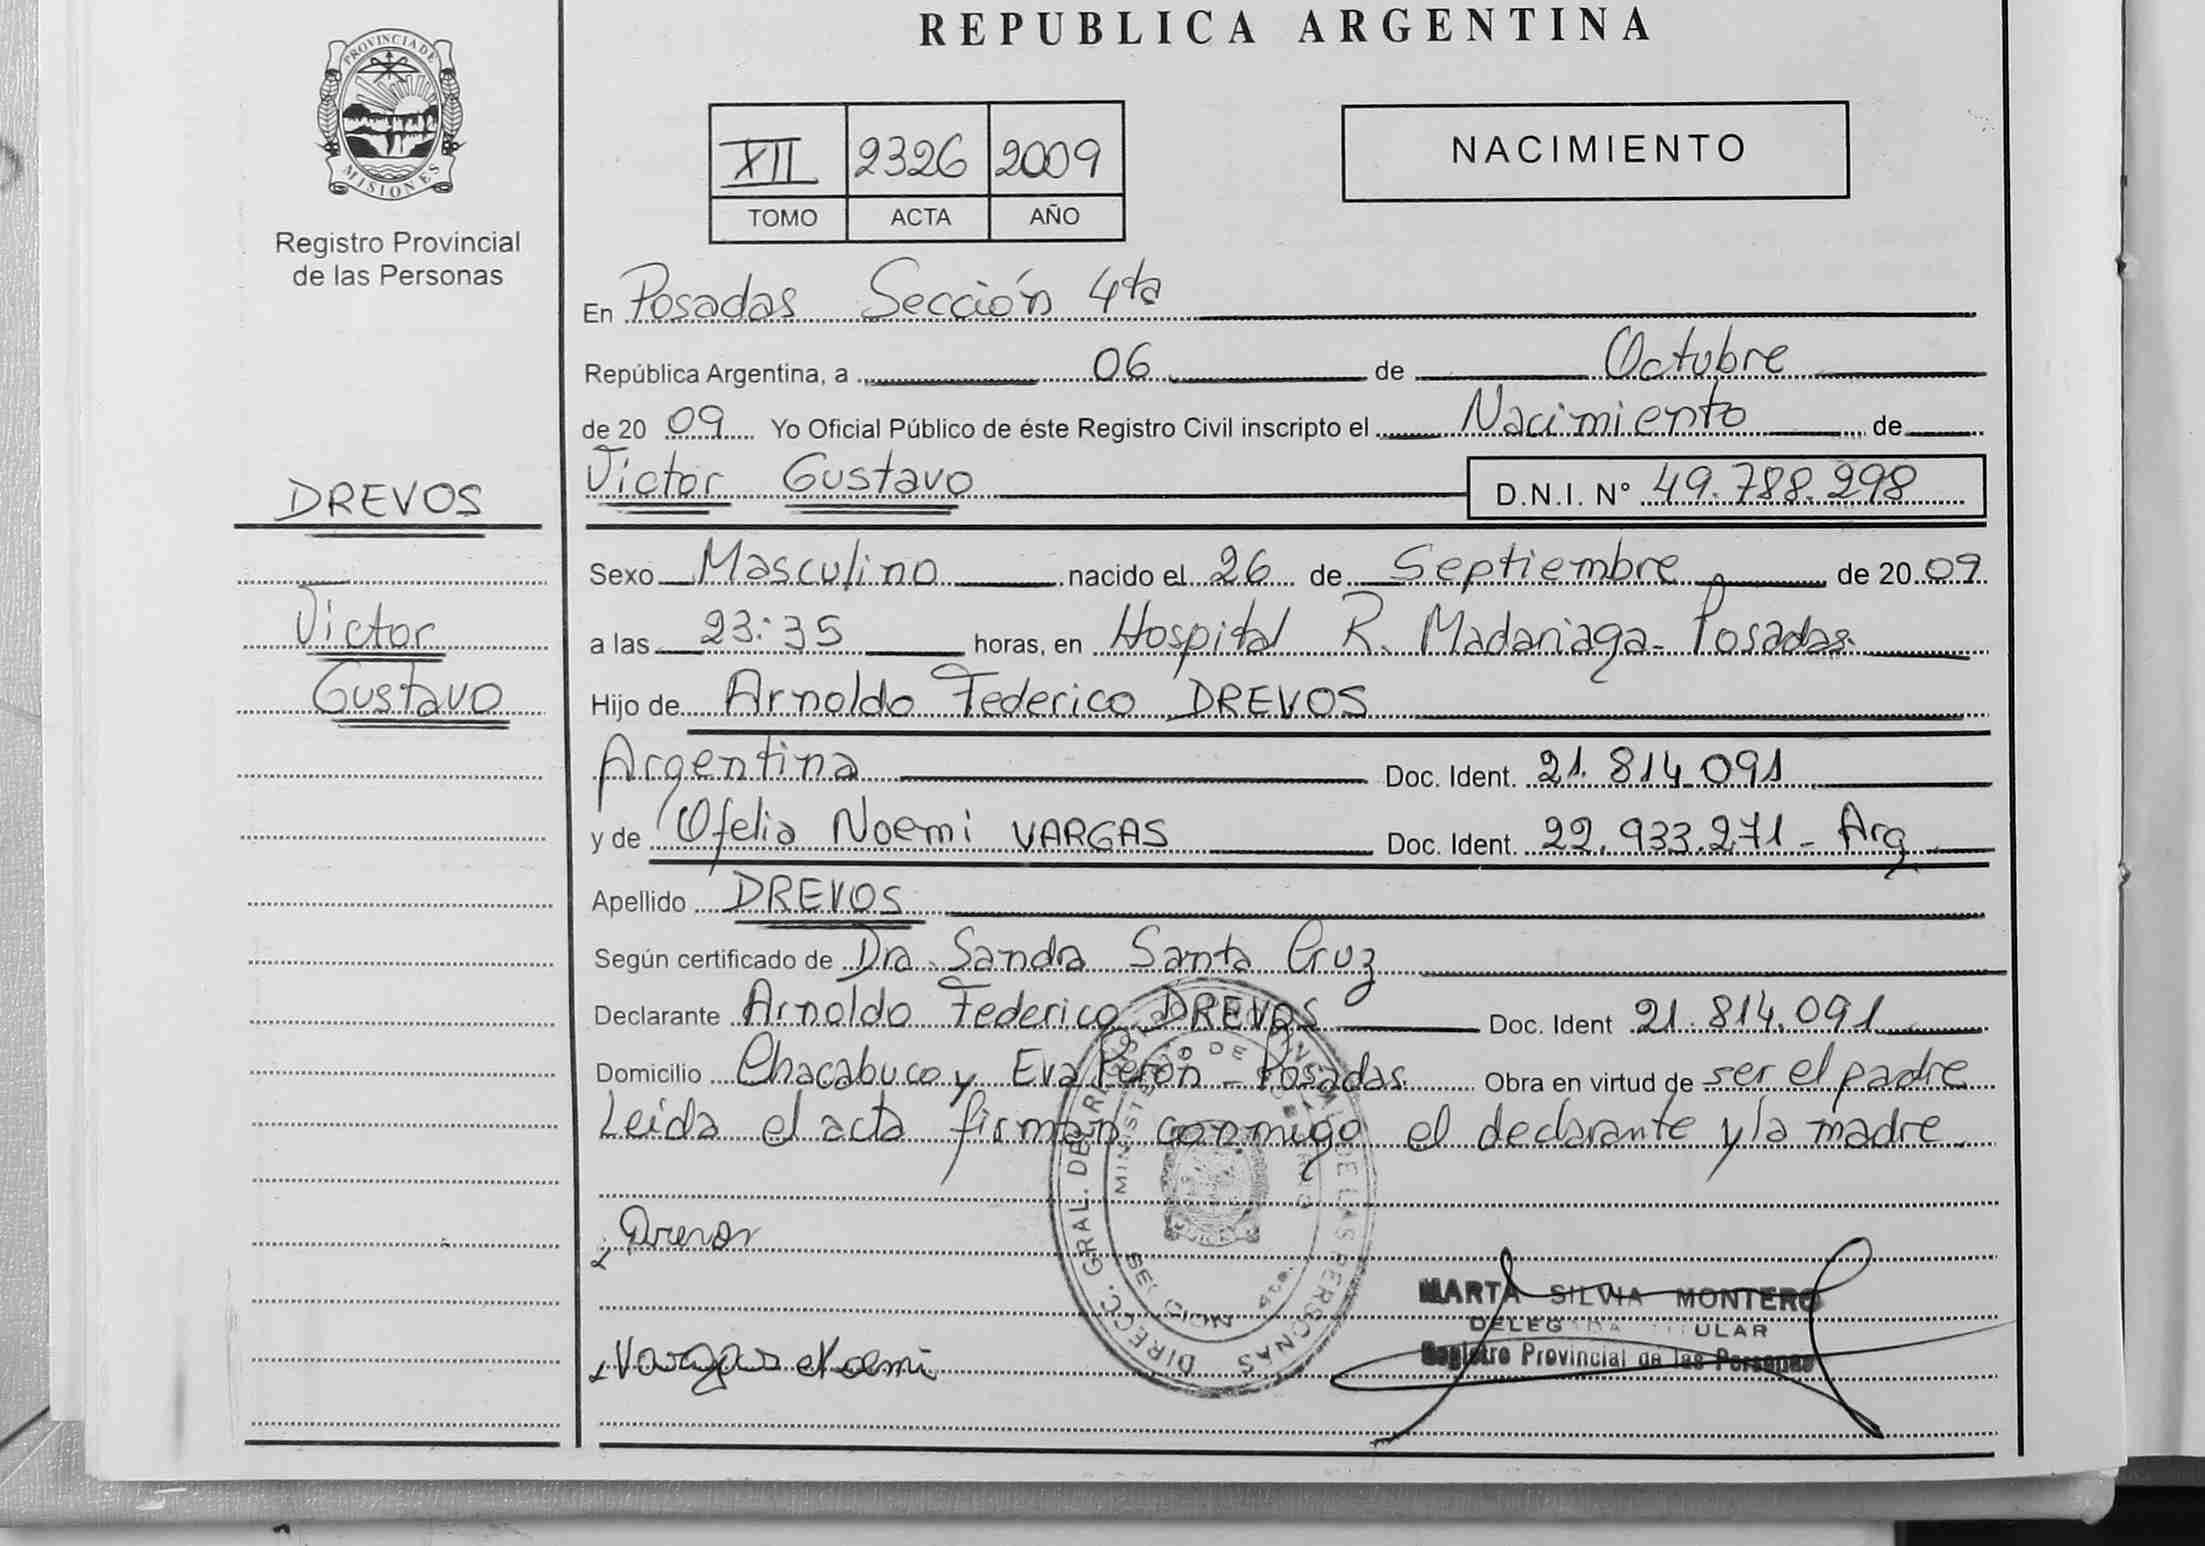 REPUBLICA ARGENTINA
PROVINCIA DE
MISIONES
Registro Provincial
de las Personas
XII 2326 2009
TOMO ACTA AÑO
NACIMIENTO
En Posadas Sección 4ta
República Argentina, a 06 de Octubre
de 20 09 Yo Oficial Público de éste Registro Civil inscripto el Nacimiento de
Victor Gustavo D.N.I. N° 49.788.298
DREVOS
Victor
Gustavo
Sexo Masculino nacido el 26 de Septiembre de 20 09
a las 23:35 horas, en Hospital R. Madariaga - Posadas.
Hijo de Arnoldo Federico DREVOS
Argentina Doc. Ident. 21.814.091
y de Ofelia Noemi VARGAS Doc. Ident. 22.933.271 - Arg
Apellido DREVOS
Según certificado de Dra. Sandra Santa Cruz
Declarante Arnoldo Federico DREVOS Doc. Ident 21.814.091
Domicilio Chacabuco y Eva Perón - Posadas. Obra en virtud de ser el padre
Leida el acta firman conmigo el declarante y la madre.
Drevos
Vargas Noemi
MARTA SILVIA MONTERO
DELEGADA TITULAR
Registro Provincial de las Personas
DIRECC. GRAL. DEL REGISTRO PROVINCIAL DE LAS PERSONAS
MINISTERIO DE GOBIERNO